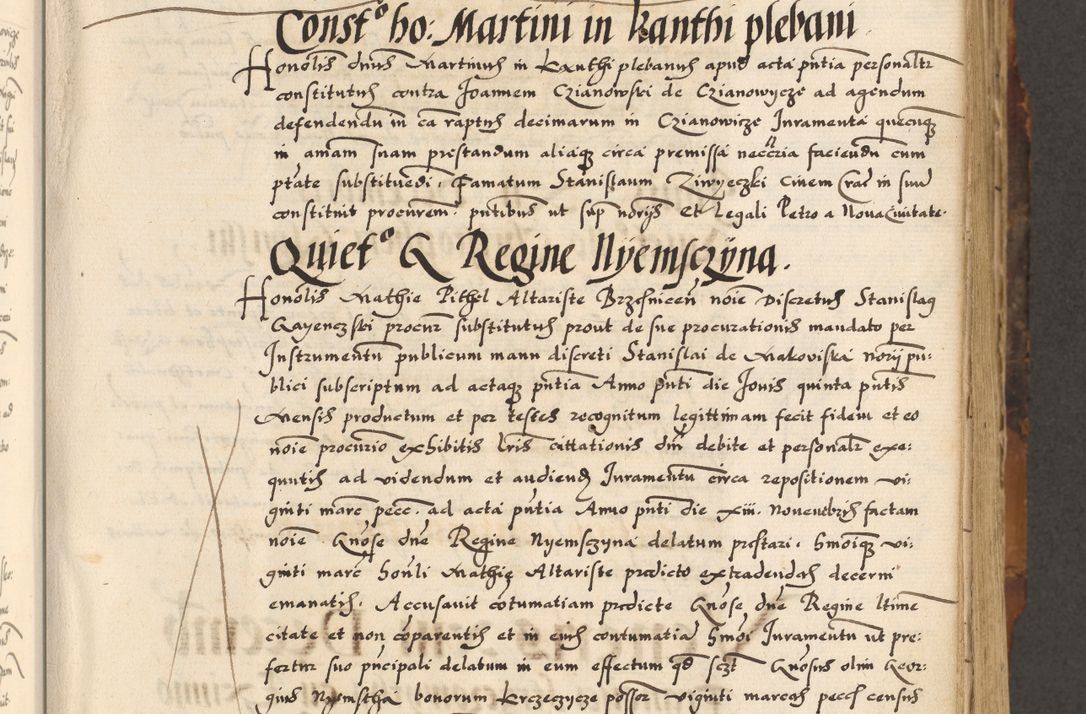 Constᵒ ho: Martini in Kanthi plebani
Honolis dnus Martinus in Kanthi plebanus apud acta pntia personalr
constitutus contra Joannem Czianowski de Czianowycze ad agendum
defendendu in ca raptus decimarum in Czianowicze Juramenta quecuq
in amam suam prestandum aliaq circa premissa neccria faciendu cum
ptate substituedi. Famatum Stanislaum Ziwyeczki Ciuem Crac in suu
constituit procurem. pntibus ut sup norijs Et Legali Petro a Noua Ciuitate.
Quietᵒ G Regine Nyemsczyna.
Honolis Mathie Pithel Altariste Brzesnicen noie Discretus Stanislaq
Gayenczski procur substitutus prout de sue procurationis mandato per
Instrumentu publicum manu discreti Stanislai de Makoviska norij pu:
blici subscriptum ad actaq pntia Anno pnti die Jouis quinta pntis
Mensis productum et per testes recognitum legittimam fecit fidem et eo
noie procurio exhibitis lris cittationis din debite et personalr exe:
qutis ad videndum et audiend Juramentu circa repositionem vi:
ginti marc pecc. ad acta pntia Anno pnti die xiii. Nouembris factam
noie Gnose dne Regine Nyemsczyna delatum prestari. Smoiq vi:
ginti marc Honli Mathie Altariste predicto extradendas decerni
emanatis. Accusauit cotumatiam predicte Gnose dne Regine ltime
citate et non coparentis et in eius contumatia Smoi Juramentu ut pre:
fertur suo pncipali delatum in eum effectum qd sczt Gnosus olim Geor:
gius Nyemstha bonorum Krczeczycze possor viginti marcas peccs census